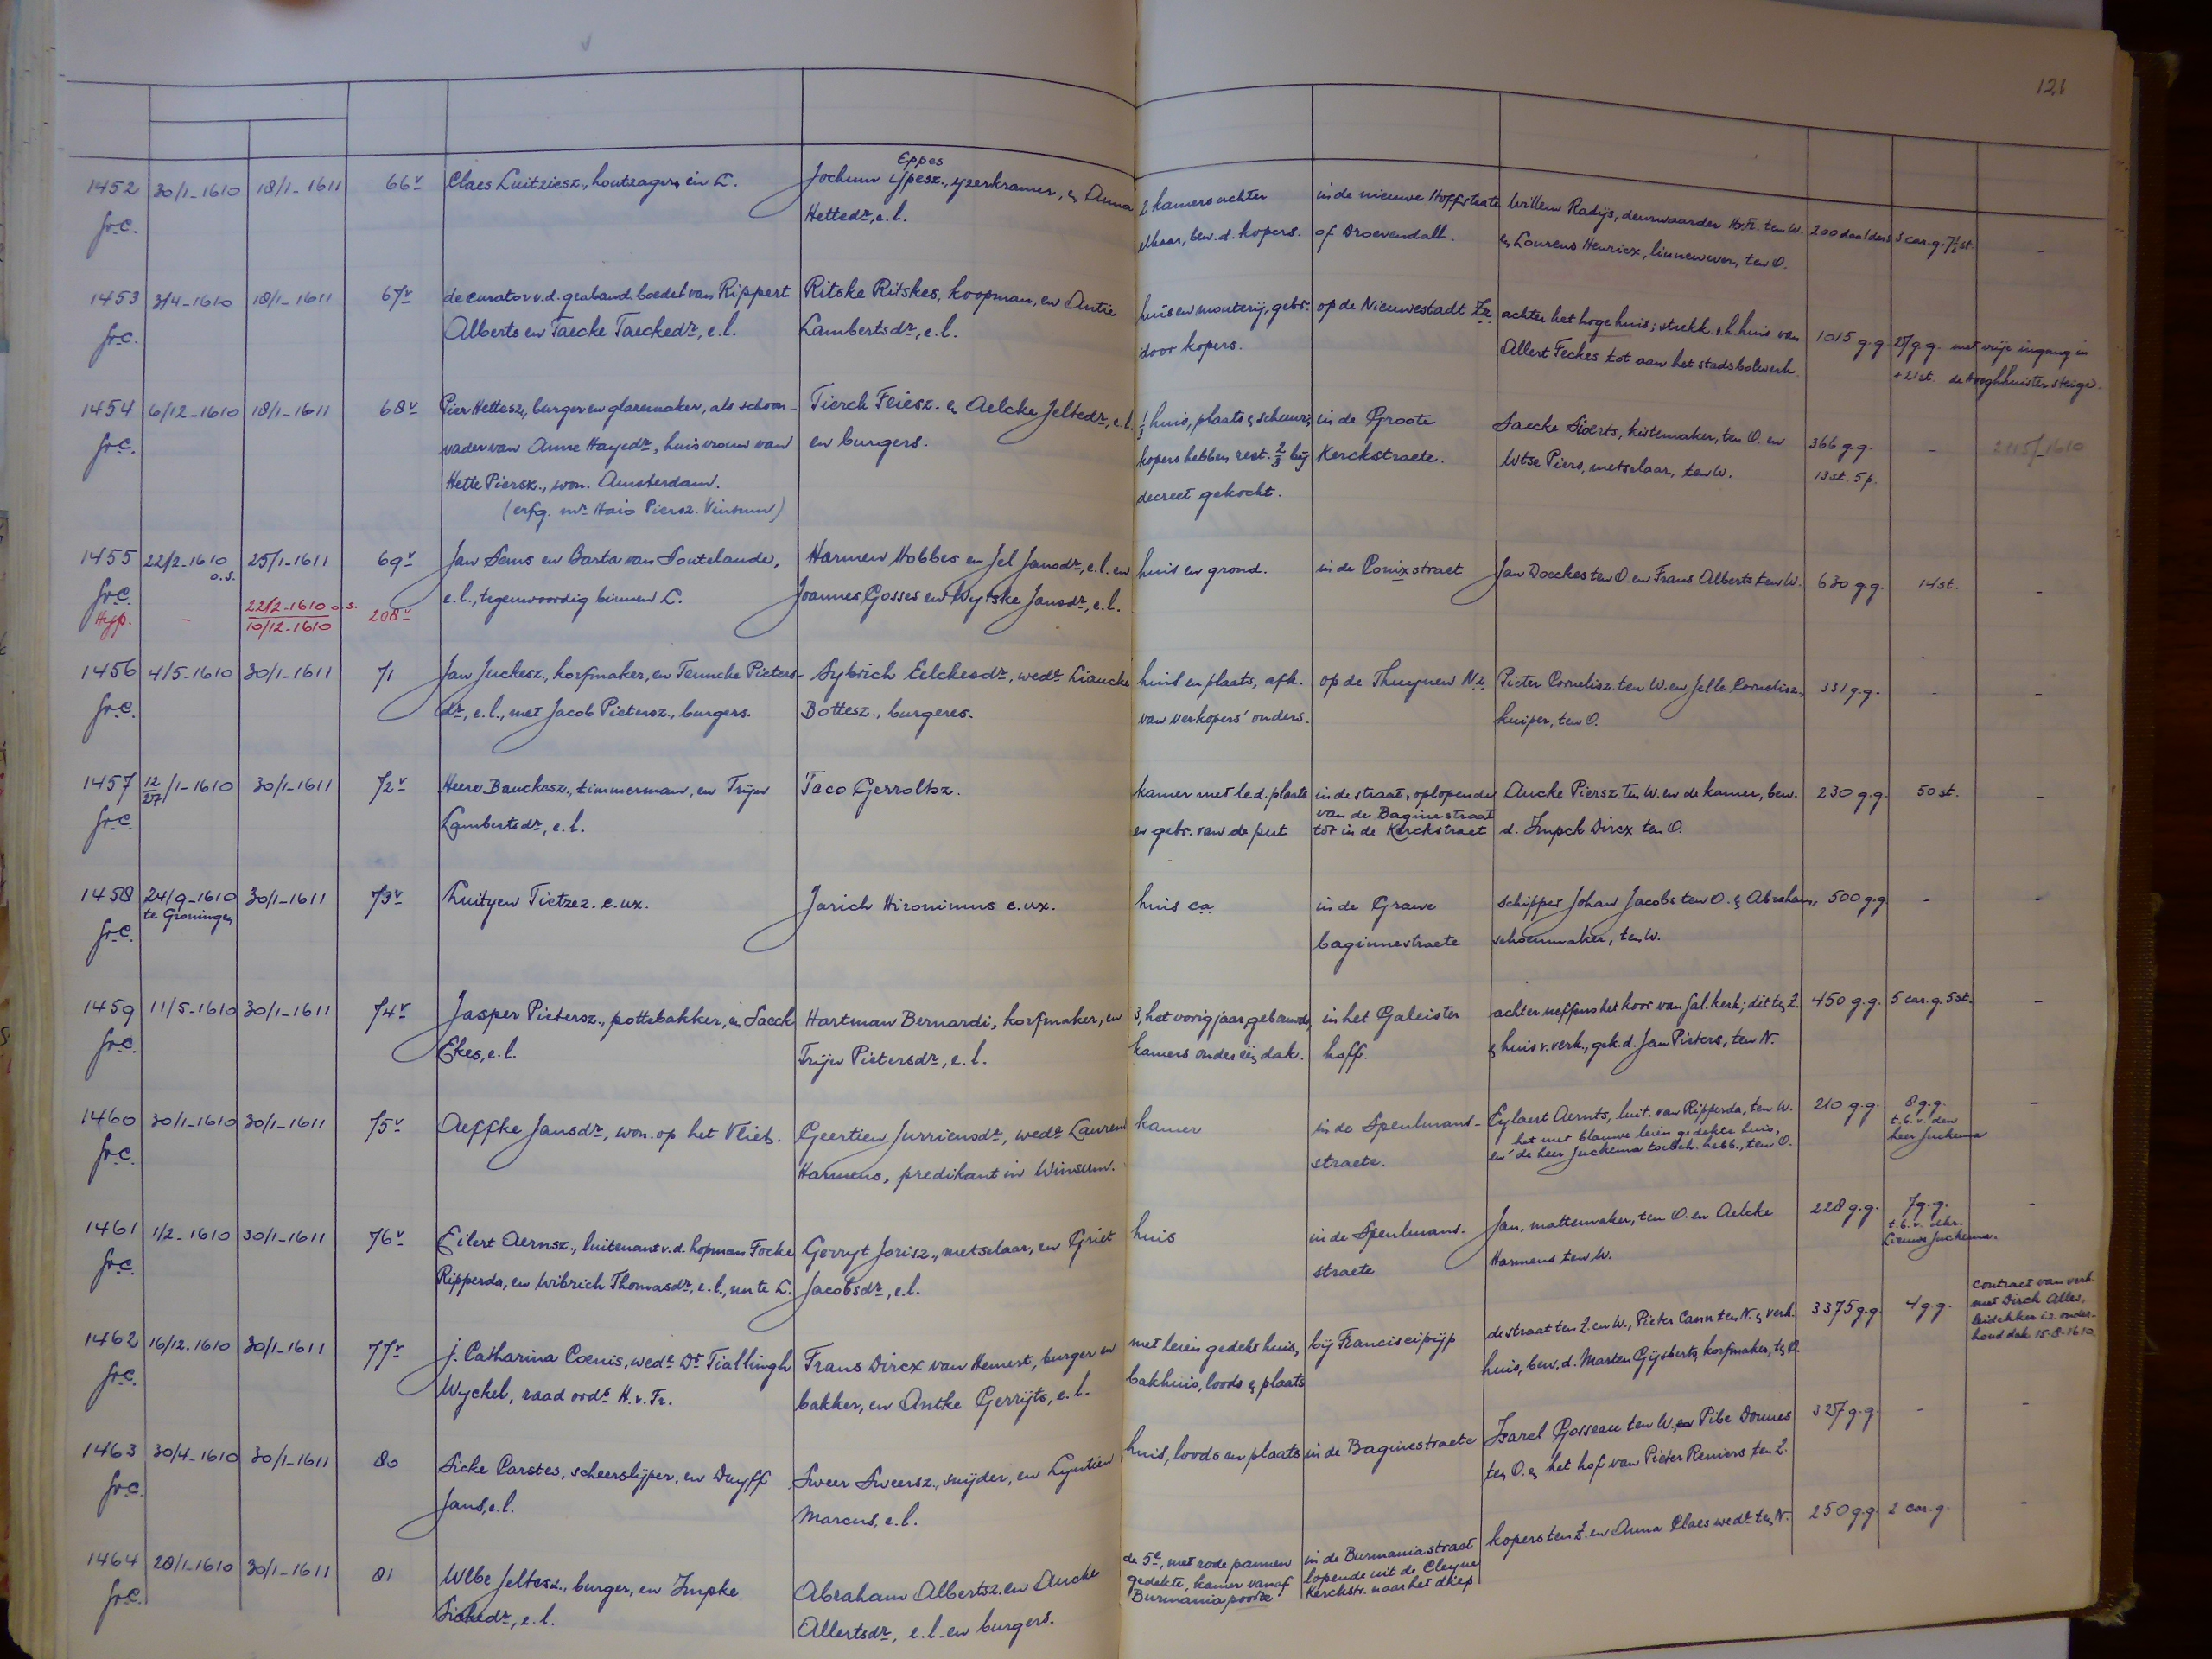 121
1452 30/1-1610 18/1-1611 66v Claes Luitziesz., houtzager, in L. Jochum Ypesz., yzerkramer, en Anna 2 kamers achter in de nieuwe Hoffstraete Willem Radijs, deurwaarder Hv.Fr. ten W. 200 daalders 3 car.g. 7½ st. -
Eppes
fr.c. Hettedr., e.l. elkaar, bew. d. kopers. of Droevendall. en Lourens Henricx, linnenwever, ten O.
1453 3/4-1610 18/1-1611 67v de curator v.d. geaband. boedel van Rippert Ritske Ritskes, koopman, en Antie huis en mouterij, gebr. op de Nieuwestadt Zz. achter het hoge huis; strekk. v.h. huis van 1015 g.g. 27 g.g. met vrije ingang in
fr.c. Alberts en Taecke Taeckedr., e.l. Lambertsdr., e.l. door kopers. Allert Feckes tot aan het stadsbolwerk. +21 st. de Hooghhuister steige.
1454 6/12-1610 18/1-1611 68v Pier Hettesz., burger en glazemaker, als schoon- Tierck Feiesz. en Aelcke Jeltedr., e.l. 1/3 huis, plaats en schuur; in de Groote Saecke Sioerts, kistemaker, ten O. en 366 g.g. - 2115/1610
fr.c. vader van Anne Hayedr., huisvrouw van en burgers. kopers hebben rest. 2/3 bij Kerckstraete. Wtse Piers, metselaar, ten W. 13 st. 5 p.
Hette Piersz., won. Amsterdam. decreet gekocht.
(erfg. mr. Haio Piersz. Vinsum)
1455 22/2-1610 o.s. 25/1-1611 69v Jan Sems en Barta van Soutelande, Harmen Hobbes en Jel Jansdr., e.l. en huis en grond. in de Conixstraet Jan Doeckes ten O. en Frans Alberts ten W. 630 g.g. 14 st. -
fr.c. e.l., tegenwoordig binnen L. Joannes Gosses en Wytske Jansdr., e.l.
Hyp. - 22/2-1610 o.s. 10/12-1610 208v
1456 4/5-1610 30/1-1611 71 Jan Juckesz., korfmaker, en Teuncke Pieters- Sybrich Eelckesdr., wedr. Liaucke huis en plaats, afk. op de Thuynen Nz. Pieter Cornelisz. ten W. en Jelle Cornelisz., 331 g.g. - -
fr.c. dr., e.l., met Jacob Pietersz., burgers. Bottesz., burgeres. van verkopers' ouders. kuiper, ten O.
1457 12/27/1-1610 30/1-1611 72v Heere Bauckesz., timmerman, en Trijn Taco Gerroltsz. kamer met led. plaats in de straat, oplopende Aucke Piersz. ten W. en de kamer, bew. 230 g.g. 50 st. -
van de Baginestraat
fr.c. Lambertsdr., e.l. en gebr. van de put tot in de Kerckstraet d. Impck Dircx ten O.
1458 24/9-1610 30/1-1611 73v Luityen Tietzez. c.ux. Jarich Hironimus c.ux. huis c.a. in de Grauwe schipper Johan Jacobs ten O. en Abraham, 500 g.g. - -
te Groningen
fr.c. baginnestraete schoenmaker, ten W.
1459 11/5-1610 30/1-1611 74v Jasper Pietersz., pottebakker, en Saeck Hartman Bernardi, korfmaker, en 3, het vorig jaar gebouwde, in het Galeister achter neffens het koor van Jal. kerk; dit ten Z. 450 g.g. 5 car.g. 5 st. -
fr.c. Ekes, e.l. Trijn Pietersdr., e.l. kamers onder één dak. hoff. en huis v. verk., gek. d. Jan Pieters, ten N.
1460 30/1-1610 30/1-1611 75v Aeffke Jansdr., won. op het Vliet. Geertien Jurriensdr., wedr. Laurens kamer in de Speulmans- Eylaert Aernts, luit. van Ripperda, ten W. 210 g.g. 8 g.g. -
het met blauwe leien gedekte huis, t.b.v. den
fr.c. Harmens, predikant in Winsum. straete. en de heer Juckema toebeh. hebb., ten O. heer Juckema
1461 1/2-1610 30/1-1611 76v Eilert Aernsz., luitenant v.d. hopman Focke Gerryt Jorisz., metselaar, en Griet huis in de Speulmans- Jan, mattemaker, ten O. en Aelcke 228 g.g. 7 g.g. -
t.b.v. dhr.
fr.c. Ripperda, en Wibrich Thomasdr., e.l., nu te L. Jacobsdr., e.l. straete Harmens ten W. Lieuwe Juckema.
1462 16/12-1610 30/1-1611 77v j. Catharina Coenis, wedr. Dr. Tiallingh Frans Dircx van Hemert, burger en met leien gedekt huis, bij Franciscipijp de straat ten Z. en W., Pieter Cann ten N. en verk. 3375 g.g. 4 g.g. contract van verk.
met Dirck Alles,
leidekker i.z. onder-
houd dak 15-8-1610.
fr.c. Wyckel, raad ordr. H.v.Fr. bakker, en Antke Gerrijts, e.l. bakhuis, loods en plaats huis, bew. d. Marten Gijsberts, korfmaker, ten O.
1463 30/4-1610 30/1-1611 80 Sicke Carstes, scheerslijper, en Duyff Sweer Sweersz., snijder, en Lyntien huis, loods en plaats in de Baginestraete Isarel Gosseau ten W. en Pibe Douwes 327 g.g. - -
fr.c. Jans, e.l. Marcus, e.l. ten O. en het hof van Pieter Reniers ten Z.
1464 28/1-1610 30/1-1611 81 Wlbe Jeltesz., burger, en Impke Abraham Albertsz. en Aucke de 5e, met rode pannen in de Burmaniastraat kopers ten Z. en Anna Claes wedr. ten N. 250 g.g. 2 car.g. -
gedekte, kamer vanaf lopende uit de Cleyne
fr.c. Sickedr., e.l. Allertsdr., e.l. en burgers. Burmania poorte Kerckstr. naar het diep